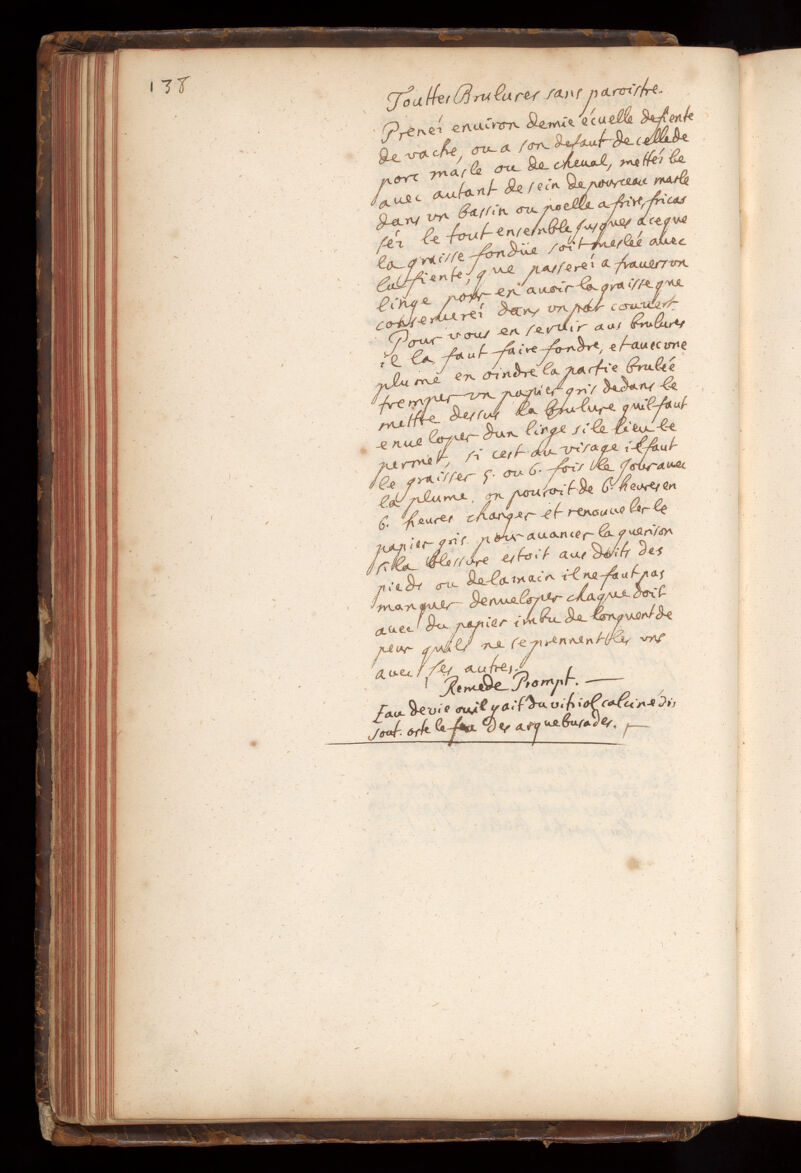 138
Touttes Brulures sans paroistre.
Prenéz enuiron demie écuelle defiente
de vache, ou a son defaut de cellede
porc masle ou de cheual, mettéz le
auec autant de sein de pourceau masle
dans vn bassin ou poelle a frire, fricas
séz le tout ensemble jusques aceque
la graisse fondüe soit meslée auec
la fiente, que passeréz a trauers vn
linge pour en auoir la graisse que
conserueréz dans vn pot couuert.
Pour vous en seruir aus brulures
il la faut faire fondre, et auec vne
plume en oindre la partie brulée
tremper vn papier gris dedans le
mettre dessus la brulure quil faut
enueloper dun linge si le lieu le
permet, si cest au visage il faut
le graisser 5. ou 6. fois le Jour auec
la plume. on pouroit de 6. heures en
6. heures changer et renouueler le
papier gris pour auancer la guerison
si la blessure estoit aus doits des
pieds ou de la main il ne faut pas
manquer denueloper chaque doit
auec du papier imbu de longuent de
peur quils ne se prennent les vns
auec les autres.
Remede Prompt. —
Eau de vie ou il y ait du vitriol calciné dis
sout. oste le feu des arquebusades.